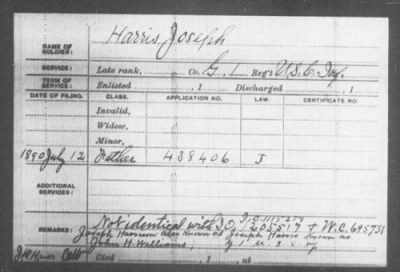 Harris, Joseph
NAME OF SOLDIER:
SERVICE: Late rank, Co. G, 1 Reg't U.S.C. Inf.
TERM OF SERVICE: Enlisted , 1 Discharged , 1
DATE OF FILING. CLASS. APPLICATION NO. LAW. CERTIFICATE NO.
Invalid,
Widow,
Minor,
1890 July 12 Father 438406 J
ADDITIONAL SERVICES:
REMARKS: Not identical with I.O. 1115279
1205517 + W.C. 695731
Joseph Harrison also known as Joseph Harris known as
John H. Williams,
Died , 1 , at